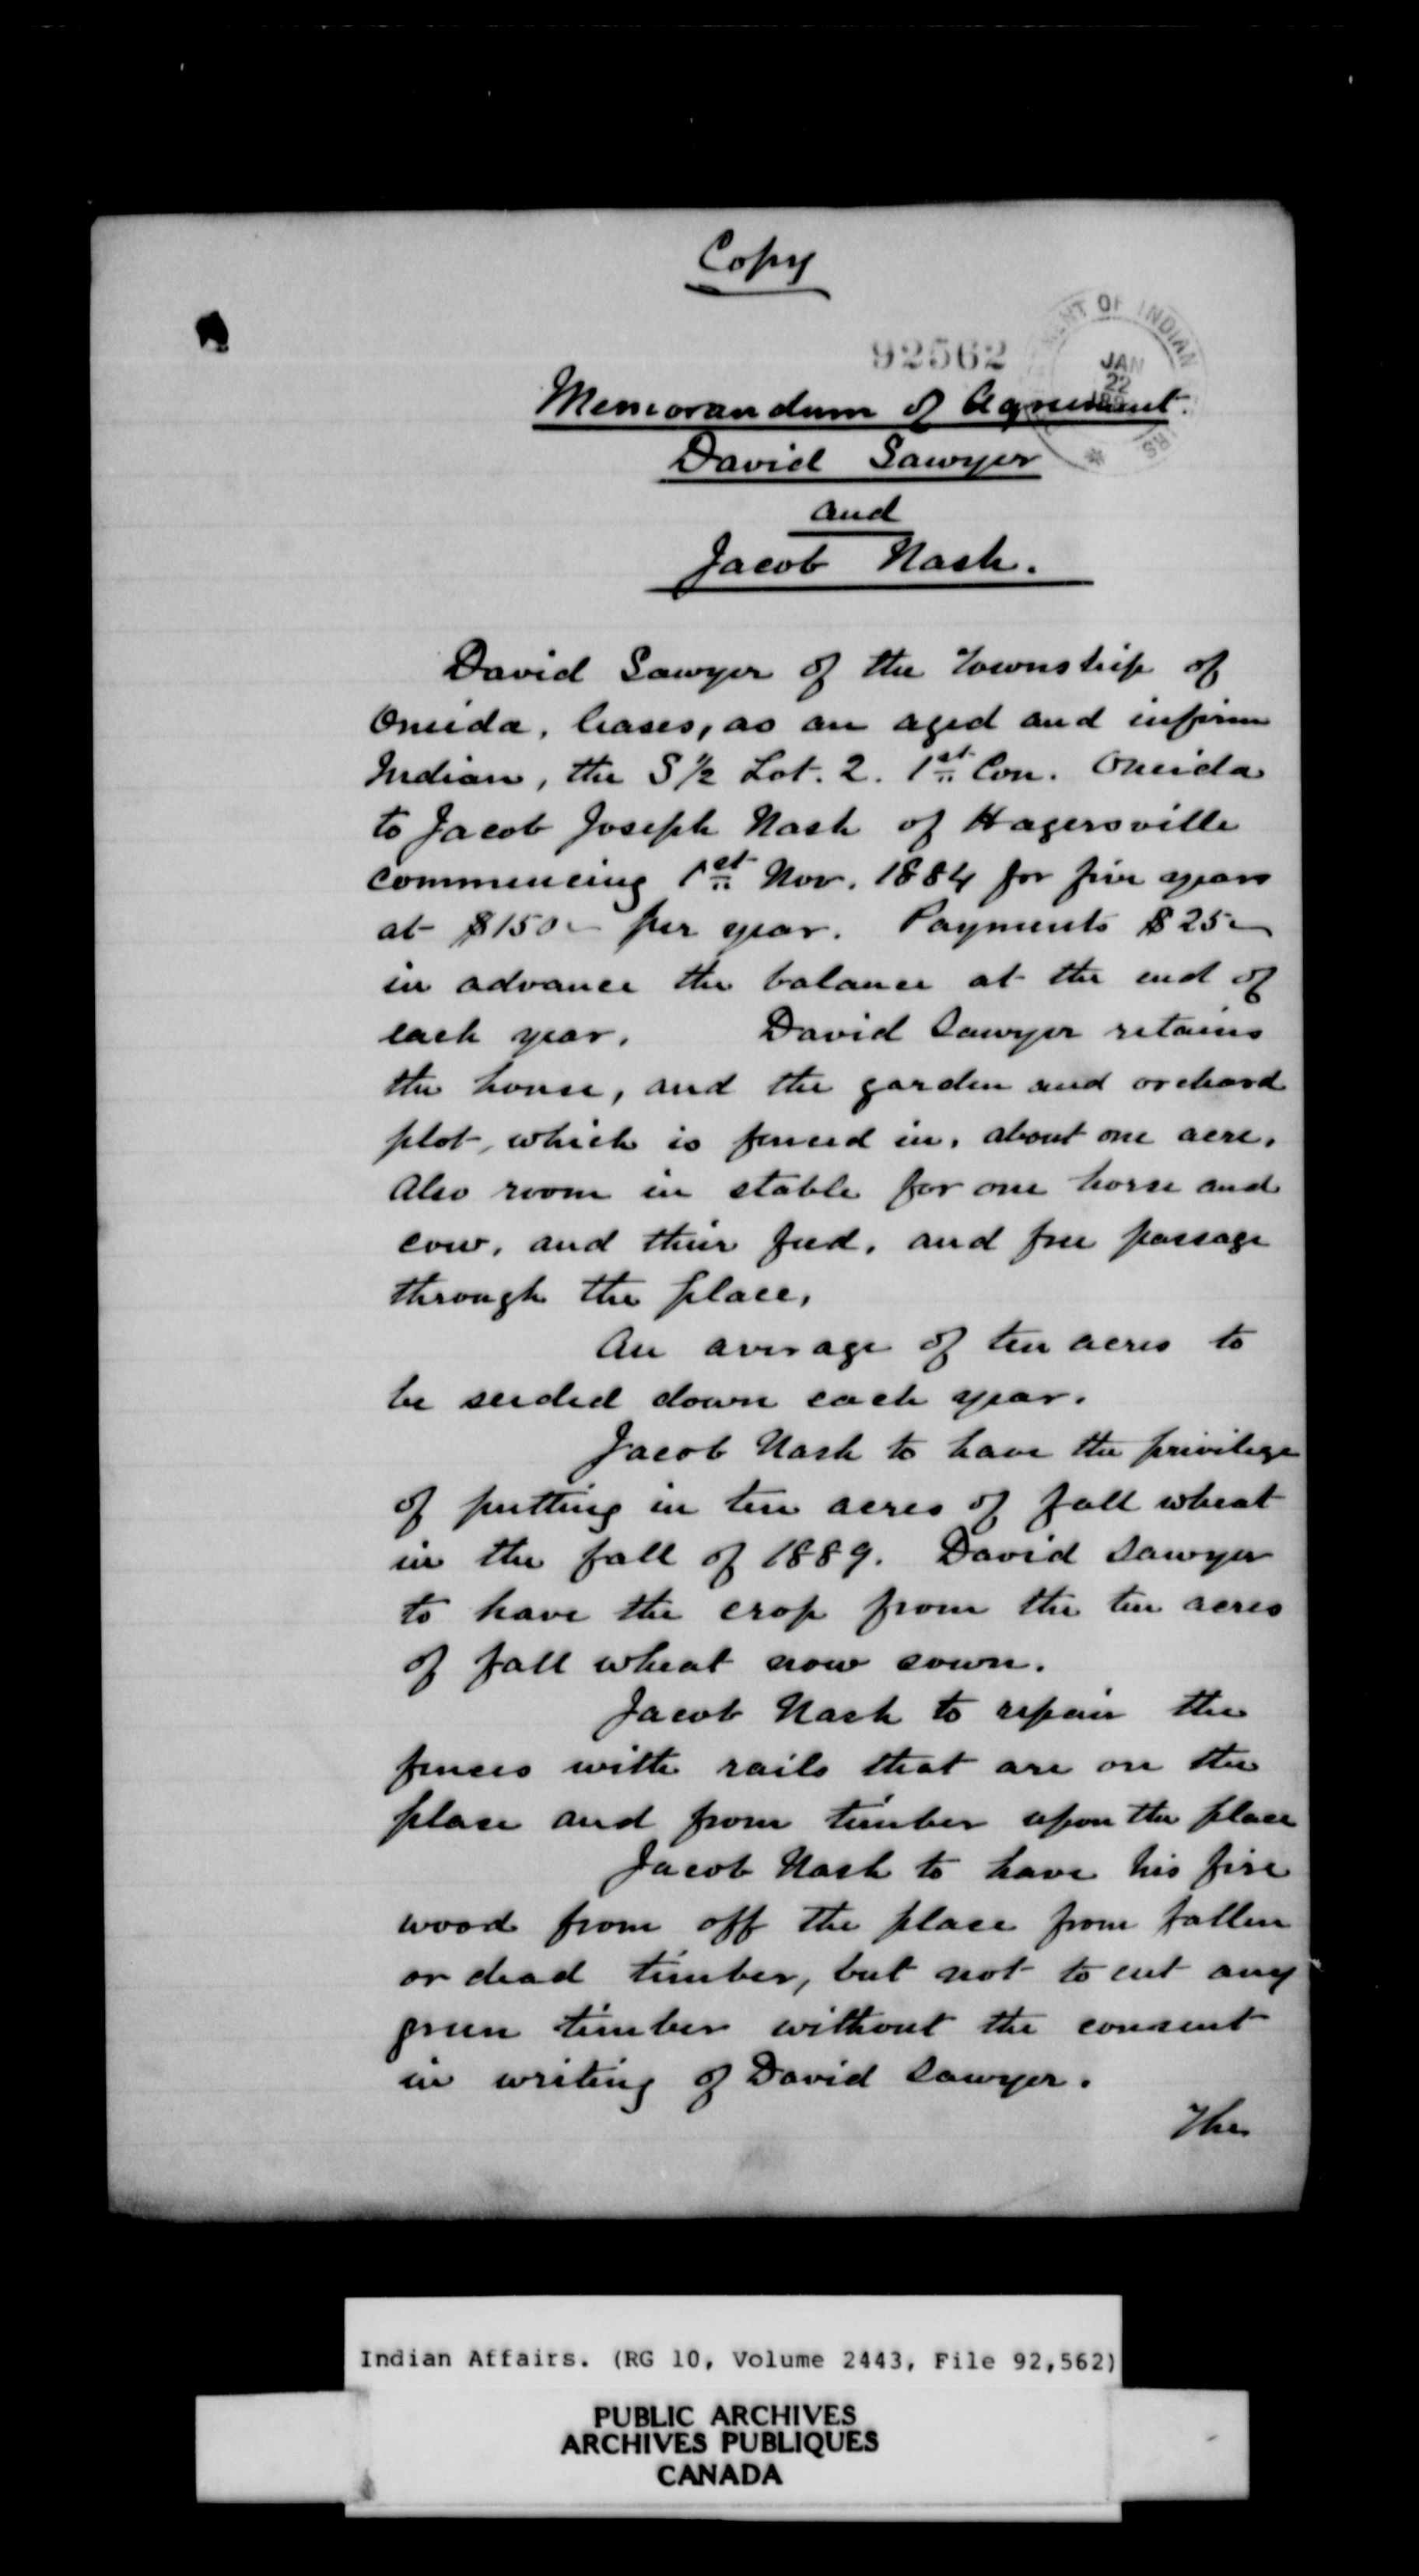 Copy
92562
MENT OF INDIAN
JAN
22
RS
Memorandum of Agreement.
David Sawyer
and
Jacob Nash.
David Sawyer of the Township of
Oneida, leases, as an aged and infirm
Indian, the S 1/2 Lot. 2. 1st Con. Oneida
to Jacob Joseph Nash of Hagersville
commencing 1st Nov. 1884 for five years
at $150.- per year. Payments $25.-
in advance the balance at the end of
each year. David Sawyer retains
the house, and the garden and orchard
plot, which is fenced in, about one acre.
Also room in stable for one horse and
cow, and their feed, and free passage
through the place.
An average of ten acres to
be seeded down each year.
Jacob Nash to have the privilege
of putting in ten acres of fall wheat
in the fall of 1889. David Sawyer
to have the crop from the ten acres
of fall wheat now sown.
Jacob Nash to repair the
fences with rails that are on the
place and from timber upon the place
Jacob Nash to have his fire
wood from off the place from fallen
or dead timber, but not to cut any
green timber without the consent
in writing of David Sawyer.
The
Indian Affairs. (RG 10, Volume 2443, File 92,562)
PUBLIC ARCHIVES
ARCHIVES PUBLIQUES
CANADA